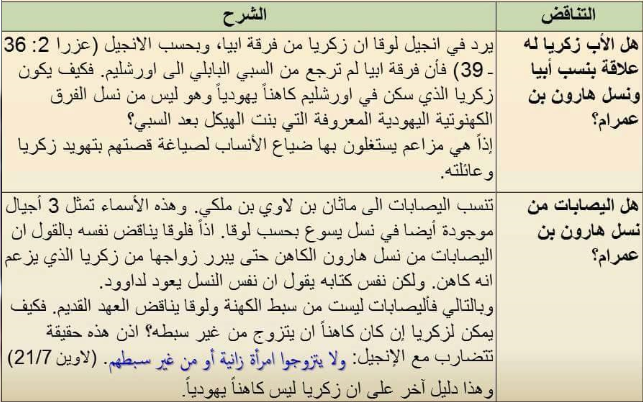 التناقض
الشرح
هل الأب زكريا له
علاقة بنسب أبيا
ونسل هارون بن
عمرام؟
يرد في انجيل لوقا ان زكريا من فرقة ابيا، وبحسب الانجيل (عزرا 2: 36
ـ 39) فأن فرقة ابيا لم ترجع من السبي البابلي الى اورشليم. فكيف يكون
زكريا الذي سكن في اورشليم كاهناً يهودياً وهو ليس من نسل الفرق
الكهنوتية اليهودية المعروفة التي بنت الهيكل بعد السبي؟
إذاً هي مزاعم يستغلون بها ضياع الأنساب لصياغة قصتهم بتهويد زكريا
وعائلته.
هل اليصابات من
نسل هارون بن
عمرام؟
تنسب اليصابات الى ماثان بن لاوي بن ملكي. وهذه الأسماء تمثل 3 أجيال
موجودة أيضا في نسل يسوع بحسب لوقا. اذاً فلوقا يناقض نفسه بالقول ان
اليصابات من نسل هارون الكاهن حتى يبرر زواجها من زكريا الذي يزعم
انه كاهن. ولكن نفس كتابه يقول ان نفس النسل يعود لداوود.
وبالتالي فأليصابات ليست من سبط الكهنة ولوقا يناقض العهد القديم. فكيف
يمكن لزكريا إن كان كاهناً ان يتزوج من غير سبطه؟ اذن هذه حقيقة
تتضارب مع الإنجيل: ولا يتزوجوا امرأة زانية أو من غير سبطهم. (لاوين 21/7)
وهذا دليل آخر على ان زكريا ليس كاهناً يهودياً.